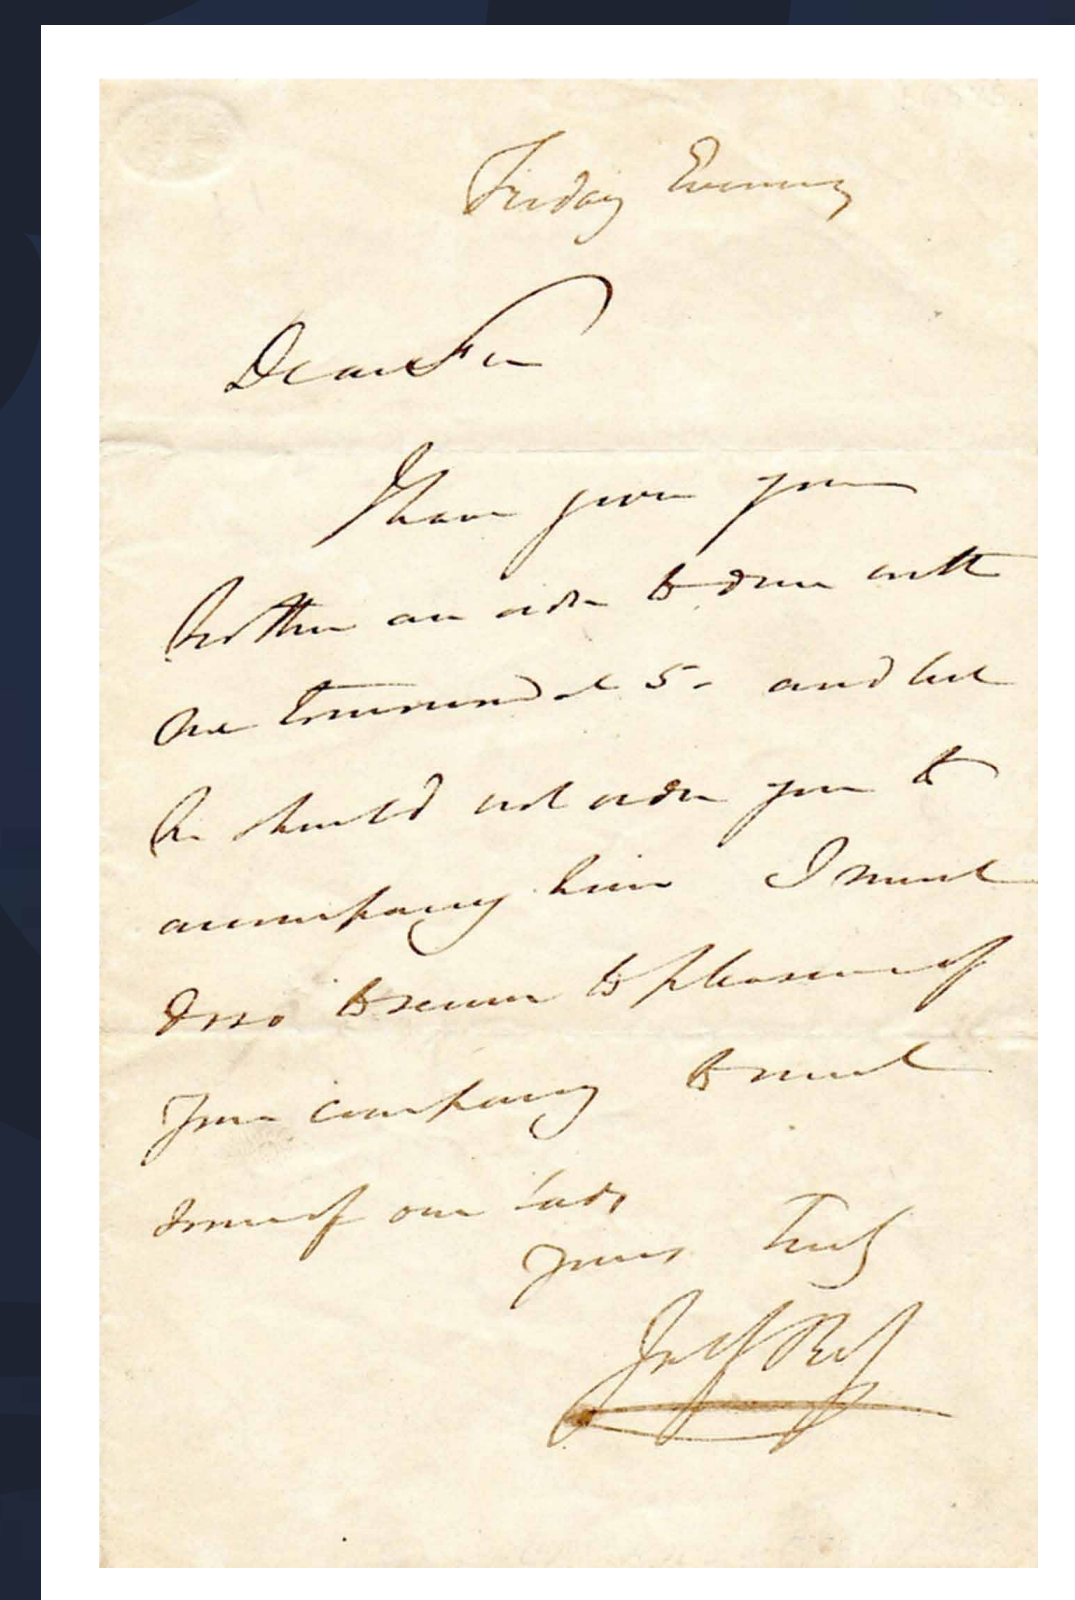 Friday Evening
Dear Sir
I have given your
brother an order to dine with
me tomorrow at 5- and lest
he should not order you to
accompany him I must
do so to secure the pleasure of
your company to meet
some of our lads
Yours Truly